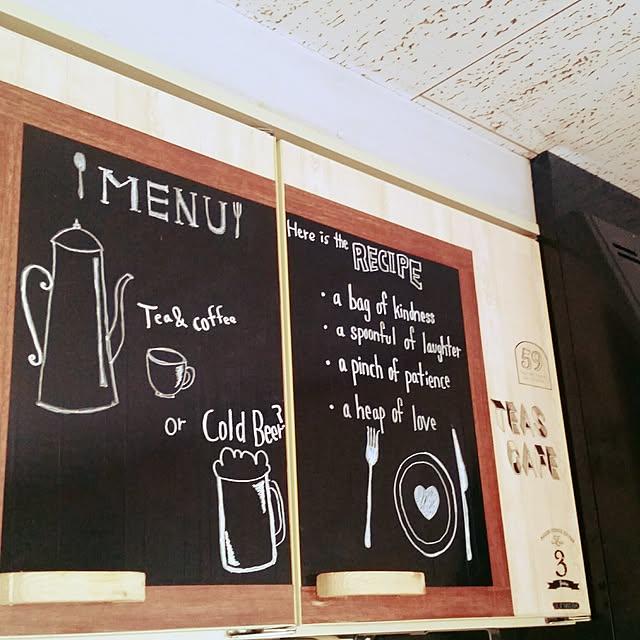 MENU
Tea & coffee
or Cold Beer?
Here is the
RECIPE
• a bag of kindness
• a spoonful of laughter
• a pinch of patience
• a heap of love
59
TEAS
CAFE
3